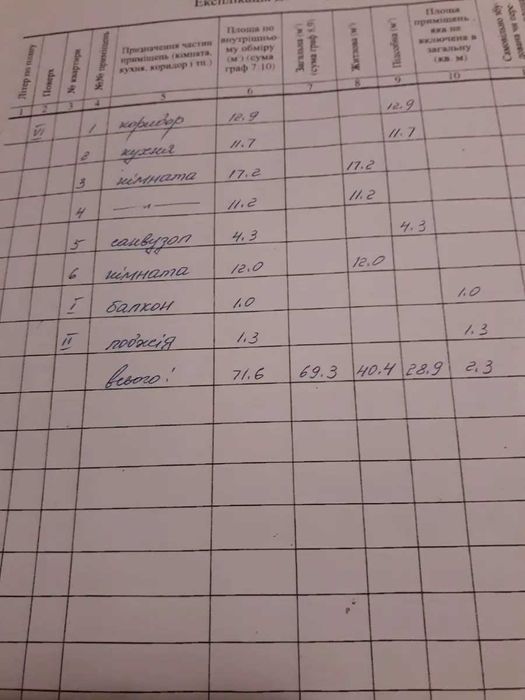 Експлікація
Літер по плану | Поверх | № квартири | №№ приміщень | Призначення частин приміщень (кімната, кухня, коридор і тп.) | Площа по внутрішньому обміру (м²) (сума граф 7.10) | Загальна (м²) (сума граф 8,9) | Житлова (м²) | Підсобна (м²) | Площа приміщень яка не включена в загальну (кв. м)
1 2 3 4 5 6 7 8 9 10
1 коридор 12.9 12.9
2 кухня 11.7 11.7
3 кімната 17.2 17.2
4 —"— 11.2 11.2
5 санвузол 4.3 4.3
6 кімната 12.0 12.0
I балкон 1.0 1.0
II лоджія 1.3 1.3
всього! 71.6 69.3 40.4 28.9 2.3